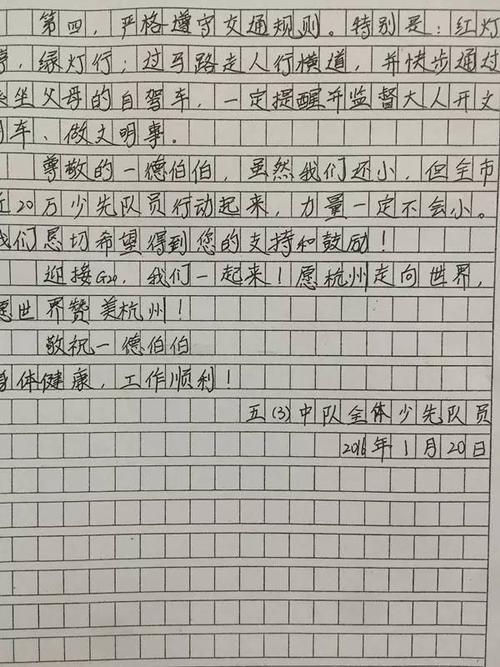 第四，严格遵守交通规则。特别是：红灯
停，绿灯行；过马路走人行横道，并快步通过
乘坐父母的自驾车，一定提醒并监督大人开文
明车、做文明事。
尊敬的一德伯伯，虽然我们还小，但全市
近20万少先队员行动起来，力量一定不会小。
我们恳切希望得到您的支持和鼓励！
迎接G20，我们一起来！愿杭州走向世界，
愿世界赞美杭州！
敬祝一德伯伯
身体健康，工作顺利！
五(3)中队全体少先队员
2016年1月20日